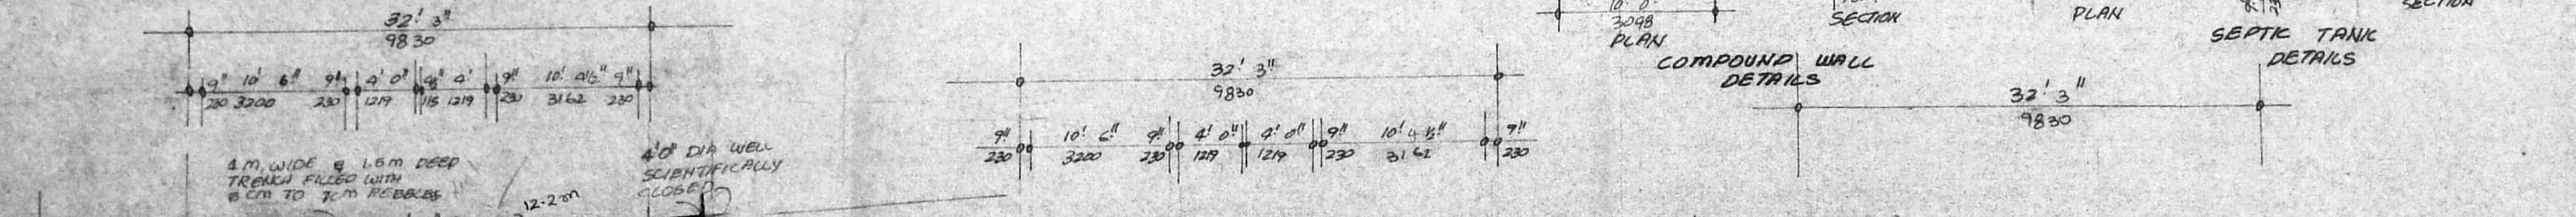 32' 3"
9830
9" 10' 6" 9" 4' 0" 4½" 4' 9" 10' 4½" 9"
230 3200 230 1219 115 1219 230 3162 230
1 M WIDE & 1.5m DEEP
TRENCH FILLED WITH
CM TO 7CM PEBBLES
12.2m
4'0" DIA WELL
SCIENTIFICALLY
CLOSED
32' 3"
9830
9" 10' 6" 9" 4' 0" 4' 0" 9" 10' 4½" 9"
230 3200 230 1219 1219 230 3162 230
10' 0"
3098
PLAN
SECTION
COMPOUND WALL
DETAILS
PLAN
SECTION
SEPTIC TANK
DETAILS
32' 3"
9830